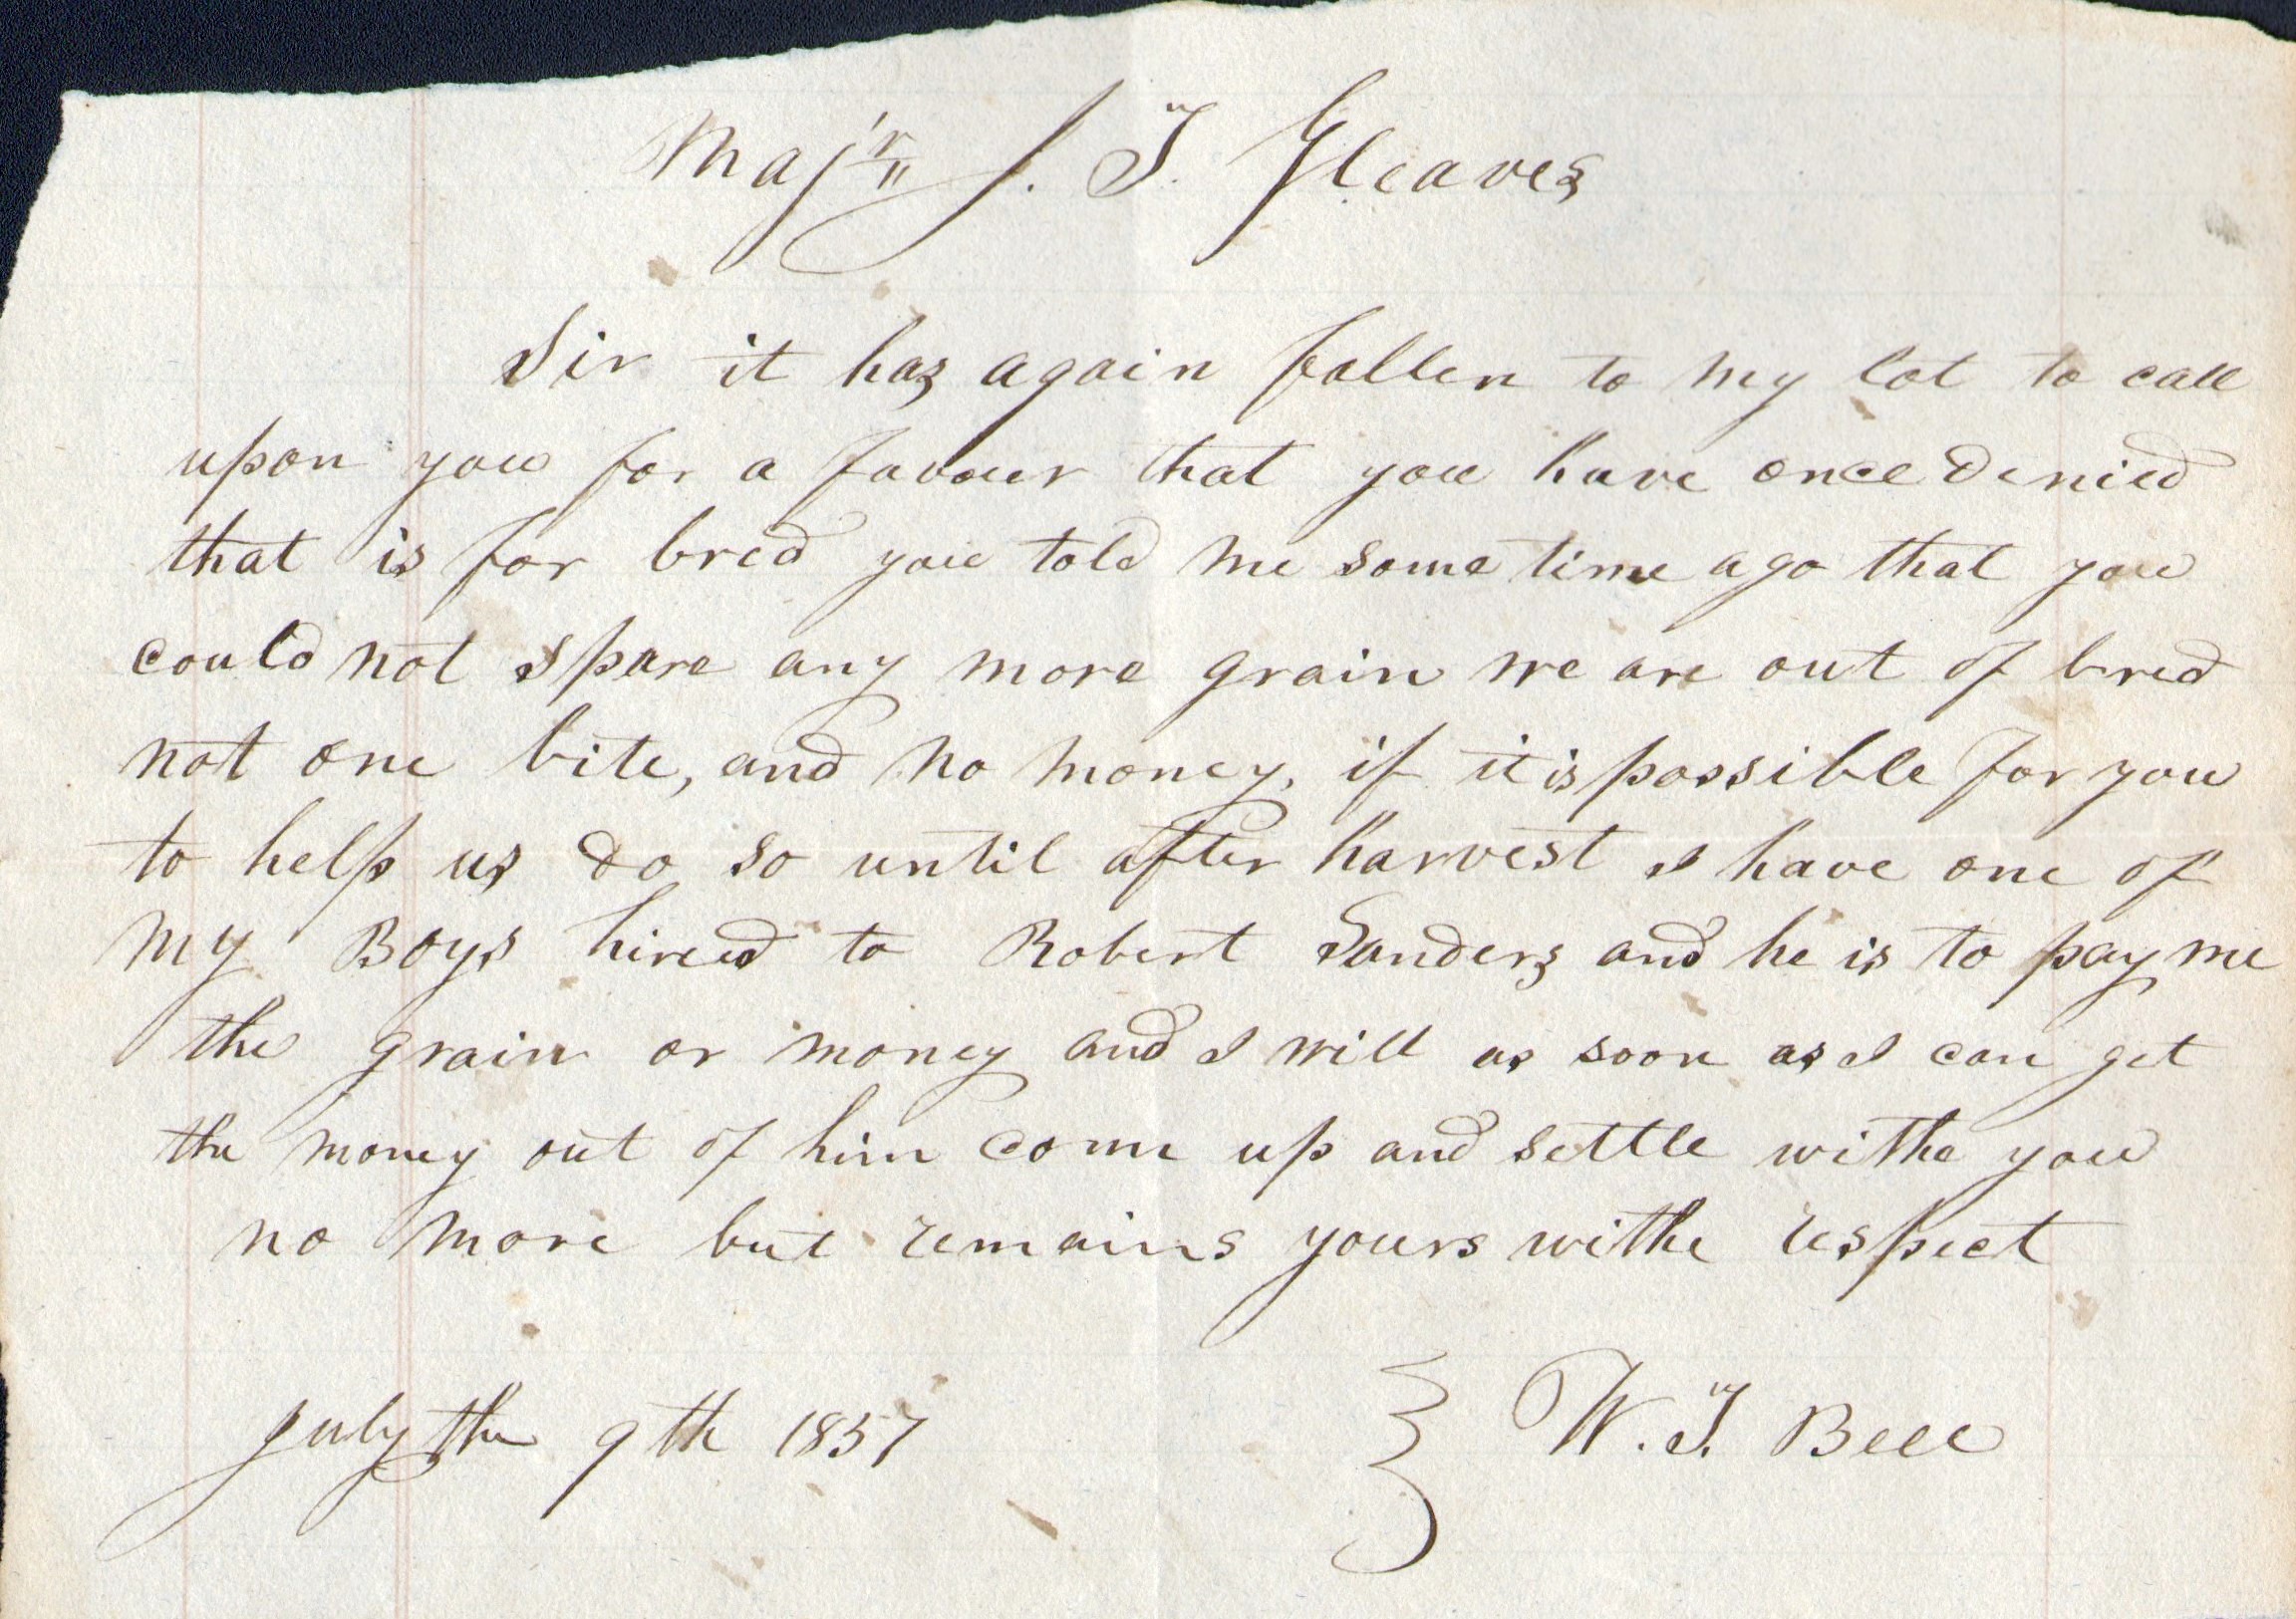 Maj'r J. T. Gleaves
Sir it has again fallen to my lot to call
upon you for a favour that you have once denied
that is for bred you told me some time ago that you
could not spare any more grain we are out of bred
not one bite, and no money, if it is possible for you
to help us do so until after harvest I have one of
my Boys hired to Robert Sanders and he is to pay me
the grain or money and I will as soon as I can get
the money out of him come up and settle withe you
no more but remains yours withe respect
July the 9th 1857
W. T. Bell